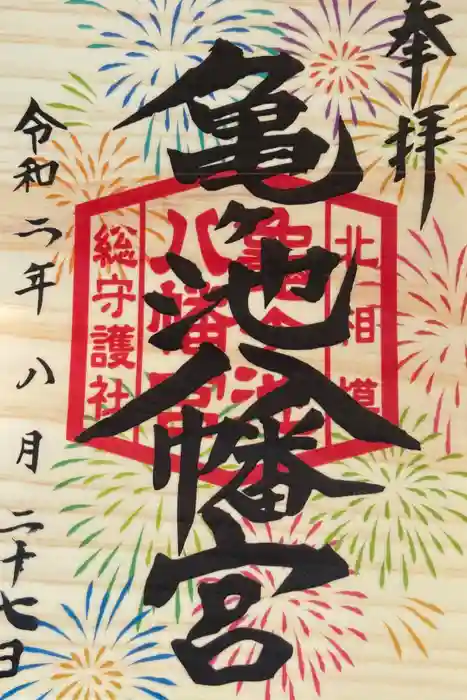 奉拝
亀ヶ池八幡宮
北相模
亀ヶ池
八幡宮
総守護社
令和二年八月二十七日